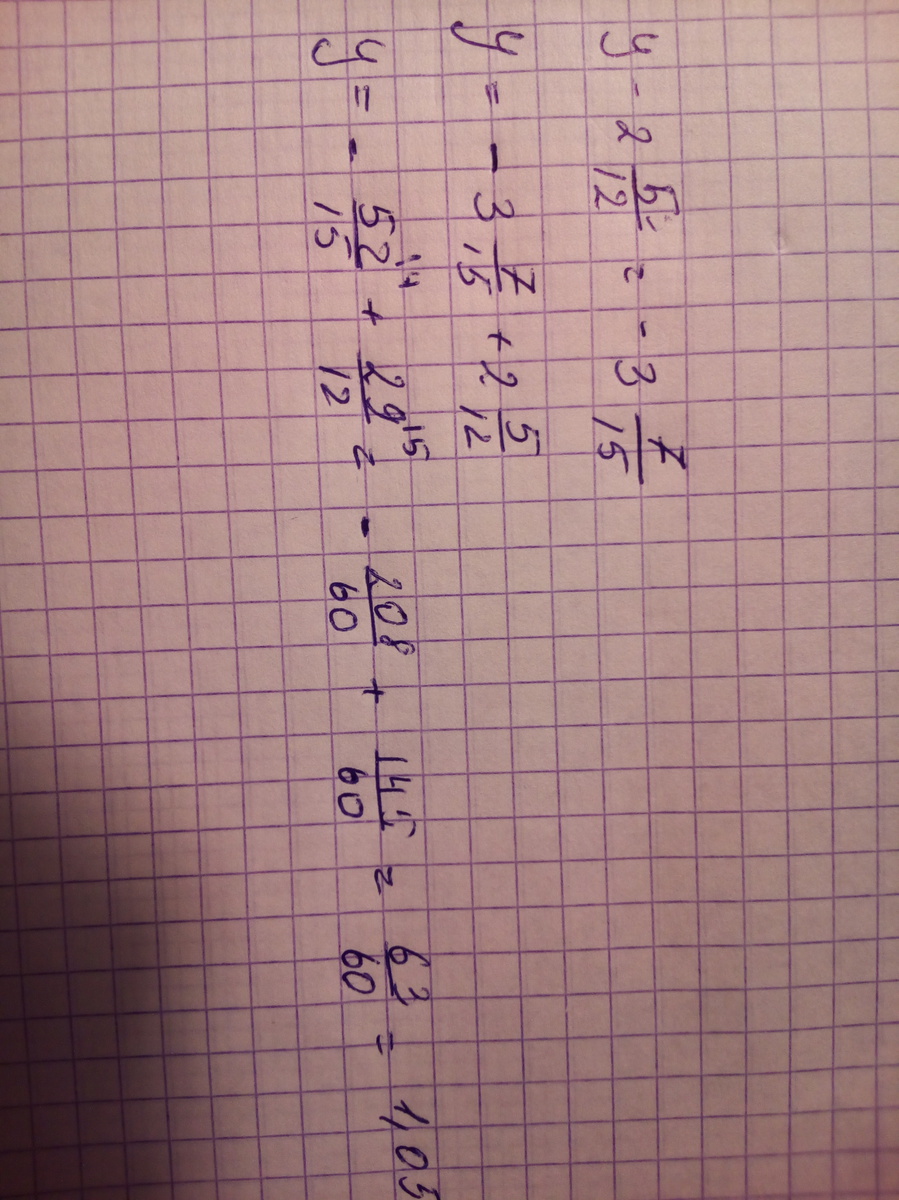 y - 2 5/12 = - 3 7/15
y = - 3 7/15 + 2 5/12
y = - 52/15 ¹⁴ + 29/12 ¹⁵ = - 208/60 + 145/60 = 63/60 = 1,05